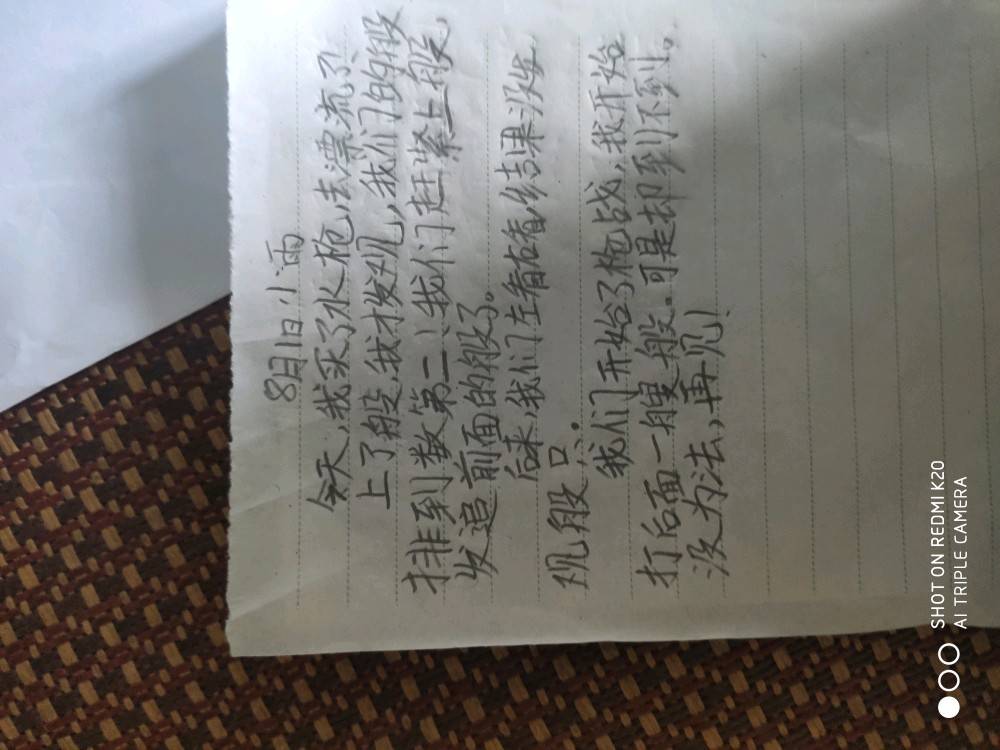 8月1日 小雨
今天,我买了水枪,去漂流了。
上了般,我才发现,我们的般
排到数第二!我们赶紧上般,
发追前面的般了。
后来,我们左看右看,结果没发
现般只。
我们开始了枪战,我开始
打后面一艘般。可是却到不到。
没为法,再见!
SHOT ON REDMI K20
AI TRIPLE CAMERA